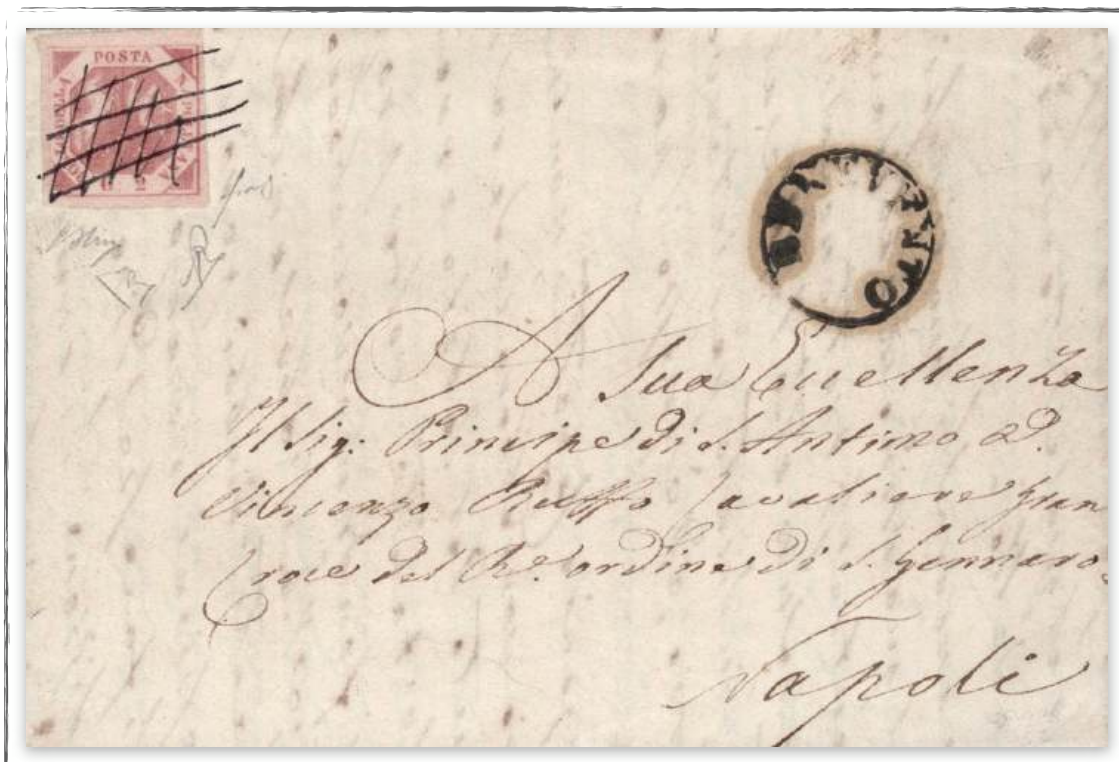 POSTA
BENEVENTO
A Sua Eccellenza
Il Sig: Principe di S. Antimo D.
Vincenzo Ruffo Cavaliere Gran
Croce del Rl. ordine di S. Gennaro
Napoli